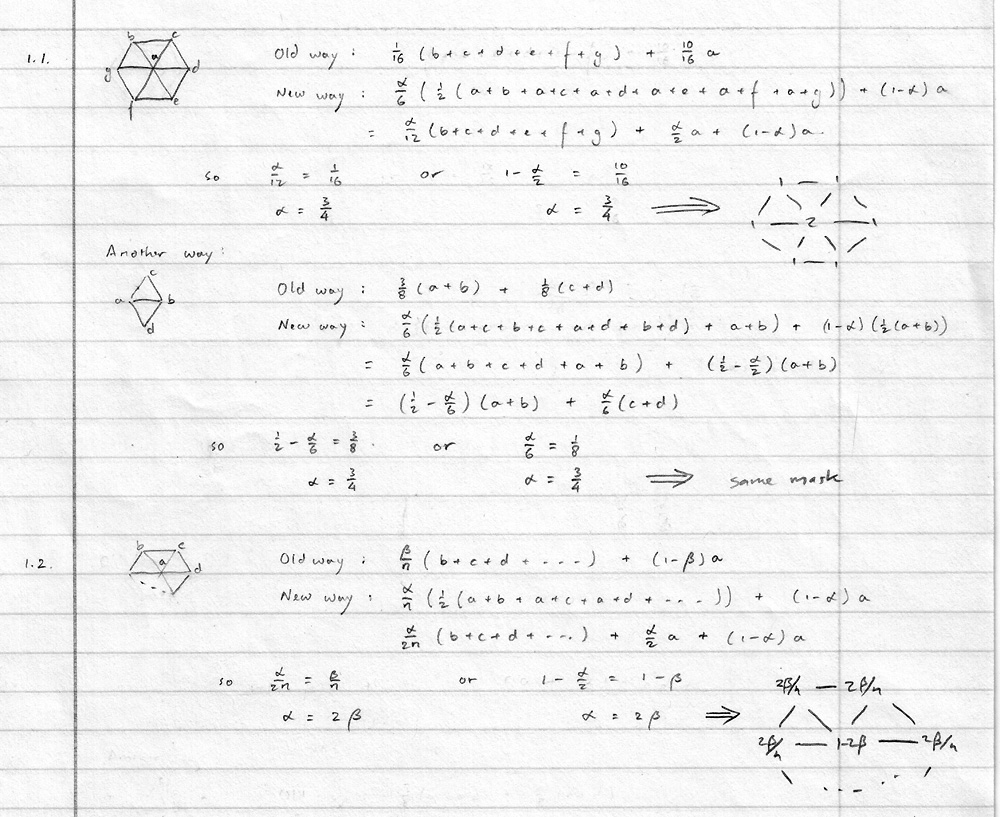 1.1.
b c
a
g d
f e
Old way : 1/16 (b+c+d+e+f+g) + 10/16 a
New way : α/6 (1/2 (a+b+a+c+a+d+a+e+a+f+a+g)) + (1-α) a
= α/12 (b+c+d+e+f+g) + α/2 a + (1-α) a.
so α/12 = 1/16 or 1 - α/2 = 10/16
α = 3/4 α = 3/4 ⟹
1 — 1
1 — 2 — 1
1 — 1
Another way :
c
a b
d
Old way : 3/8 (a+b) + 1/8 (c+d)
New way : α/6 (1/2 (a+c+b+c+a+d+b+d) + a+b) + (1-α)(1/2 (a+b))
= α/6 (a+b+c+d+a+b) + (1/2 - α/2)(a+b)
= (1/2 - α/6)(a+b) + α/6 (c+d)
so 1/2 - α/6 = 3/8 or α/6 = 1/8
α = 3/4 α = 3/4 ⟹ same mask
1.2.
b c
a d
Old way : β/n (b+c+d+ ....) + (1-β) a
New way : α/n (1/2 (a+b+a+c+a+d+....)) + (1-α) a
α/2n (b+c+d+...) + α/2 a + (1-α) a
so α/2n = β/n or 1 - α/2 = 1 - β
α = 2β α = 2β ⟹
2β/n — 2β/n
2β/n — 1-2β — 2β/n